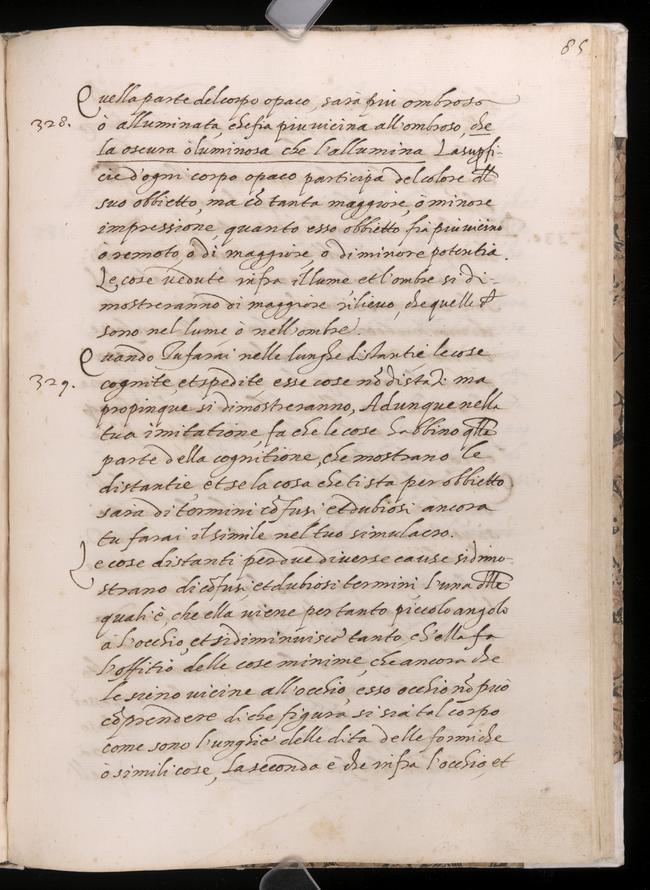 85
Quella parte del corpo opaco, sarà piu ombrosa
328. ò alluminata, che fia piu vicina all'ombroso, che
la oscura ò luminosa che l'allumina La supfi-
cie d'ogni corpo opaco participa del colore dl
suo obbietto, ma cō tanta maggiore, o minore
impressione, quanto esso obbietto fia piu vicino
ò remoto, ò di maggiore, o di minore potentia.
Le cose vedute infra il lume et l'ombre si di-
mostreranno di maggiore rilievo, che quelle ch
sono nel lume ò nell'ombre.
Quando Tu farai nelle lunghe distantie le cose
329. cognite, et spedite esse cose nō distāti ma
propinque si dimostreranno, Adunque nella
tua imitatione, fa che le cose habbino qlla
parte della cognitione, che mostrano le
distantie et se la cosa che ti sta per obbietto
sarà di termini cōfusi et dubiosi ancora
tu farai il simile nel tuo simulacro.
Le cose distanti per due diverse cause si dimo-
strano di cōfusi, et dubiosi termini l'una dlle
quali è, che ella viene per tanto piccolo angolo
à l'occhio, et si diminuisce tanto, ch'ella fa
l'offitio delle cose minime, che ancora che
le sieno vicine all'occhio, esso occhio nō può
cōprendere di che figura si sia tal corpo
come sono l'unghie delle dita delle formiche
ò simili cose, La seconda è che infra l'occhio, et